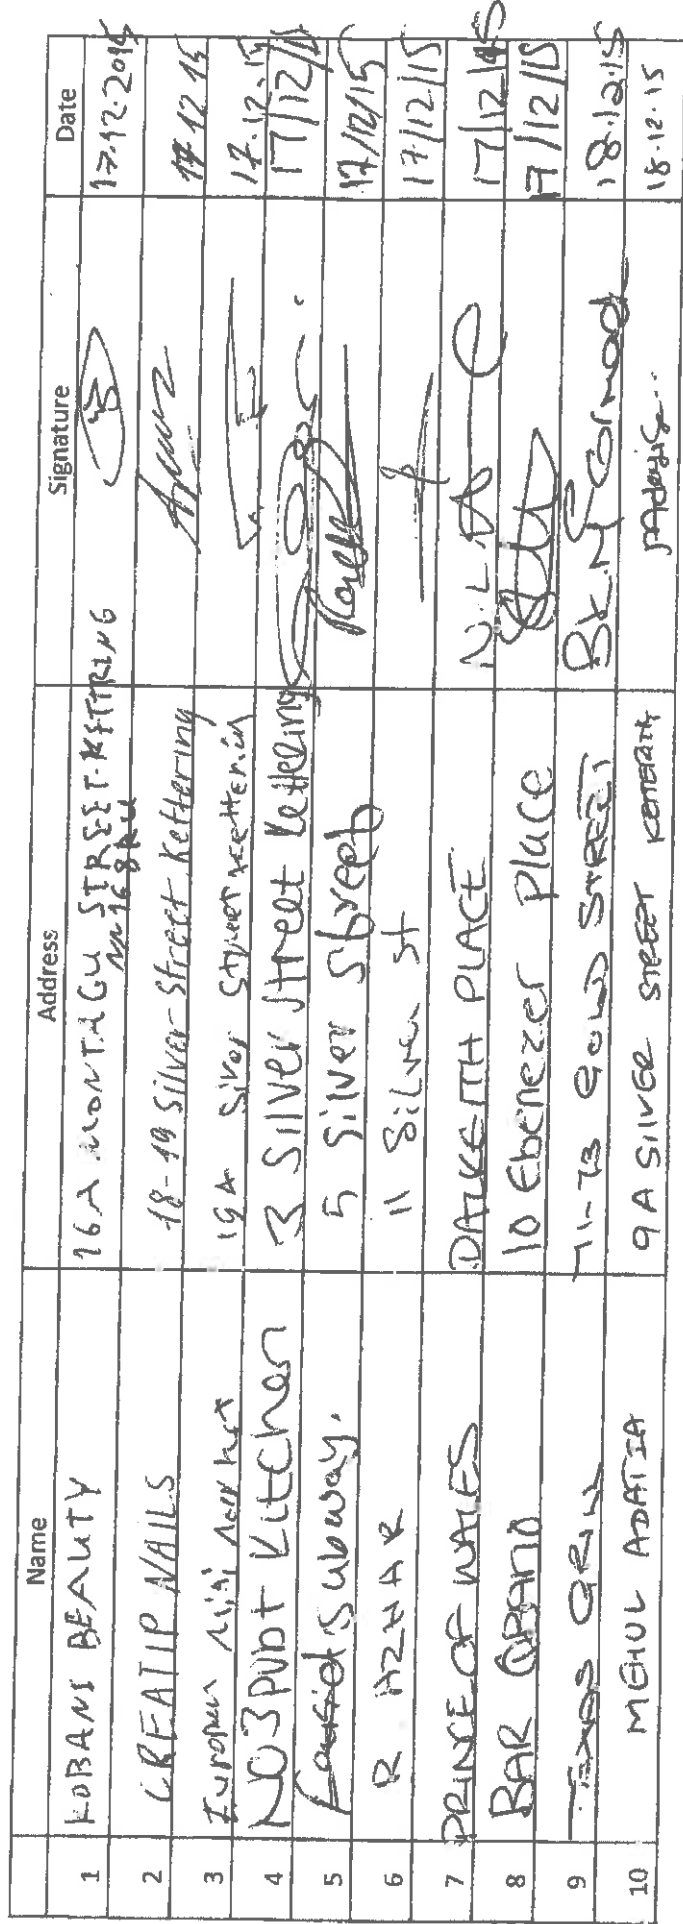 Name Address Signature Date
1 KOBANI BEAUTY 16A MONTAGU STREET-KETTRING 17.12.2015
NN16 8RU
2 CREATIP NAILS 18-19 Silver Street Kettering 17 12 15
3 European Mini Market 19A Silver Street Kettering 17.12.15
4 NO3 Pub + Kitchen 3 Silver Street Kettering 17/12/15
5 Subway. 5 Silver Street 17/12/15
6 R AZHAR 11 Silver St 17/12/15
7 PRINCE OF WALES DALKEITH PLACE 17/12/15
8 BAR 10 Ebenezer Place 17/12/15
9 TEXAS GRILL 71-73 GOLD STREET 18.12.15
10 MEHUL ADATIA 9A SILVER STREET KETTERING 18.12.15